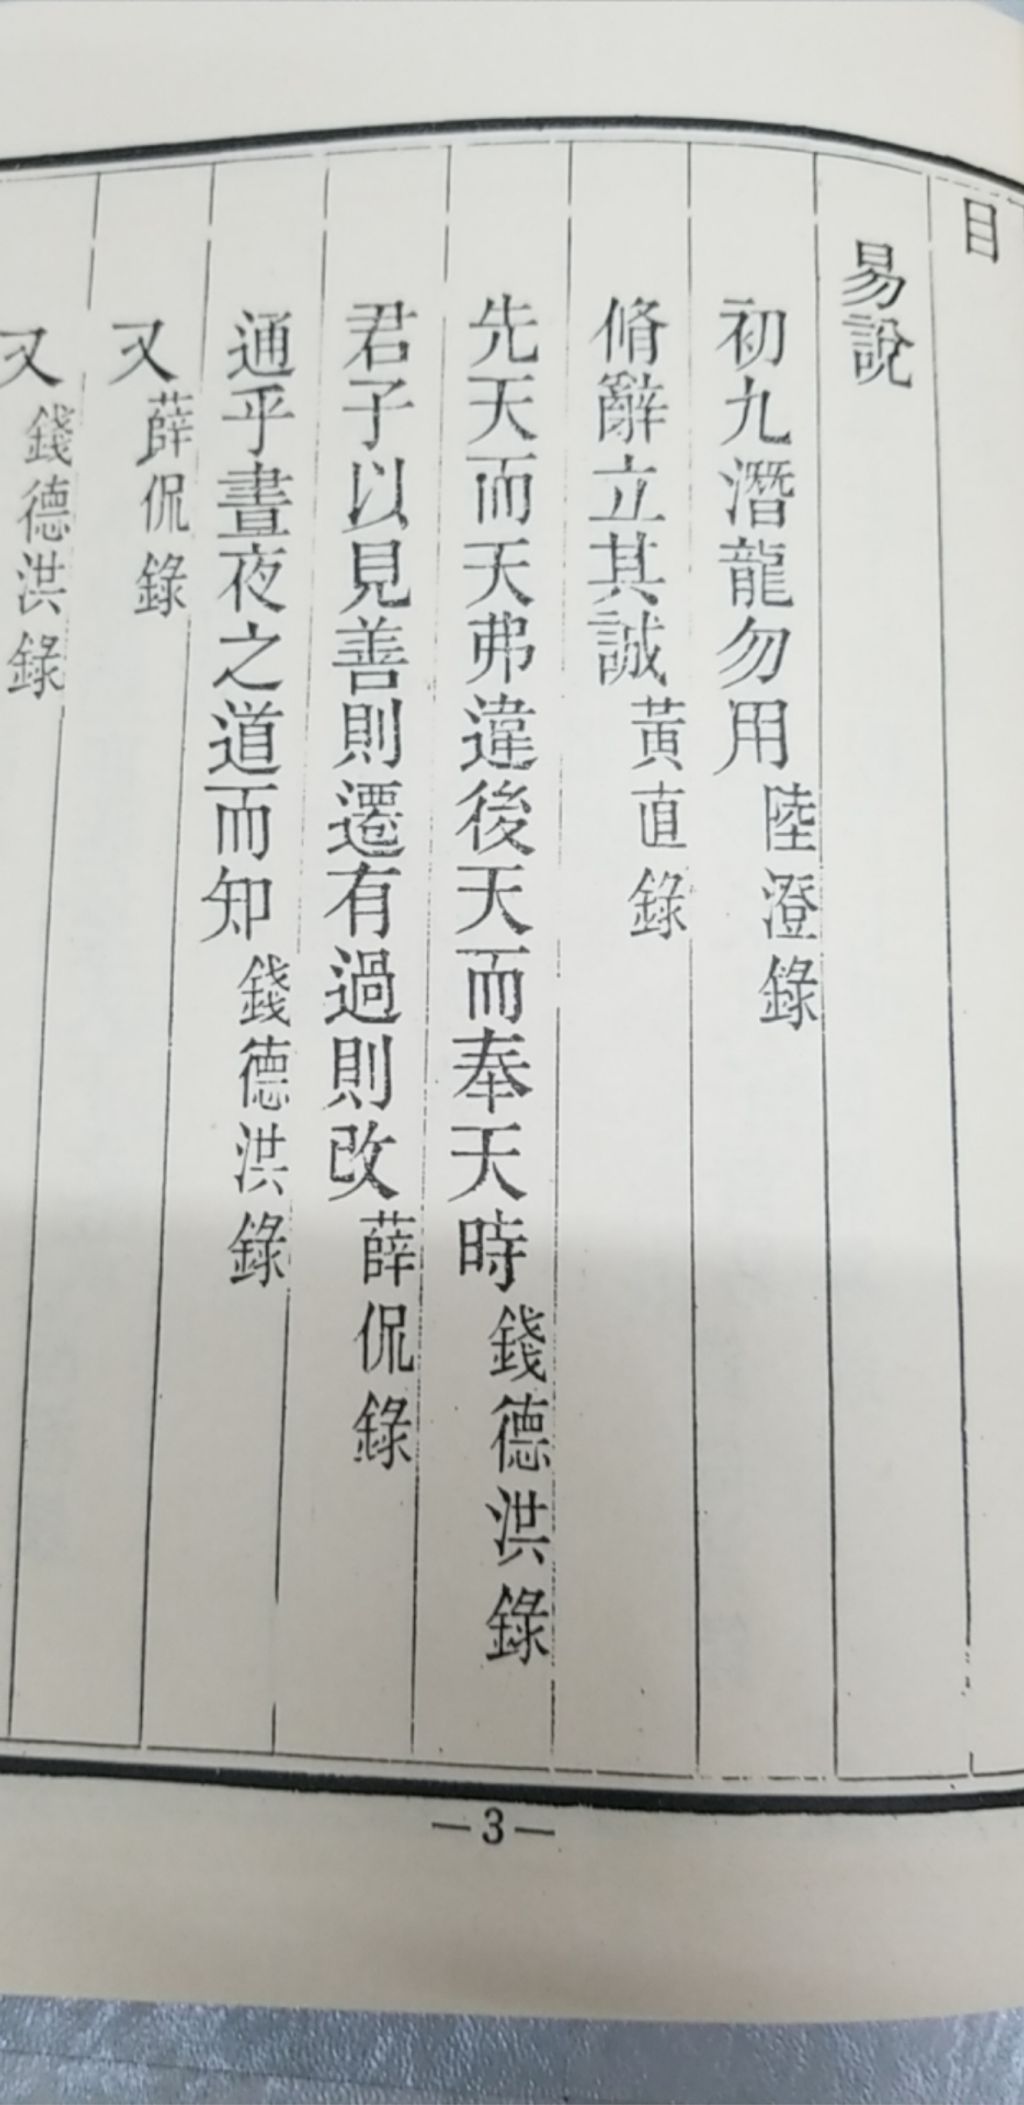 目
易說
初九潛龍勿用 陸澄錄
脩辭立其誠 黃直錄
先天而天弗違後天而奉天時 錢德洪錄
君子以見善則遷有過則改 薛侃錄
通乎晝夜之道而知 錢德洪錄
又 薛侃錄
又 錢德洪錄
—3—